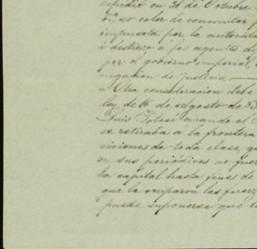 espidió en 31 de Octubre
so color de conmutar
impuesta por la autorida
á destierro á los agentes d
por el gobierno imperial,
negación de justicia
Otra consideración debe
ley de 16 de agosto de
Luis Potosí cuando el
se retiraba á la frontera
visiones de toda clase, q
en sus periódicos no fuer
la capital hasta fines de
que la ocuparon las fuerz
puede suponerse que l